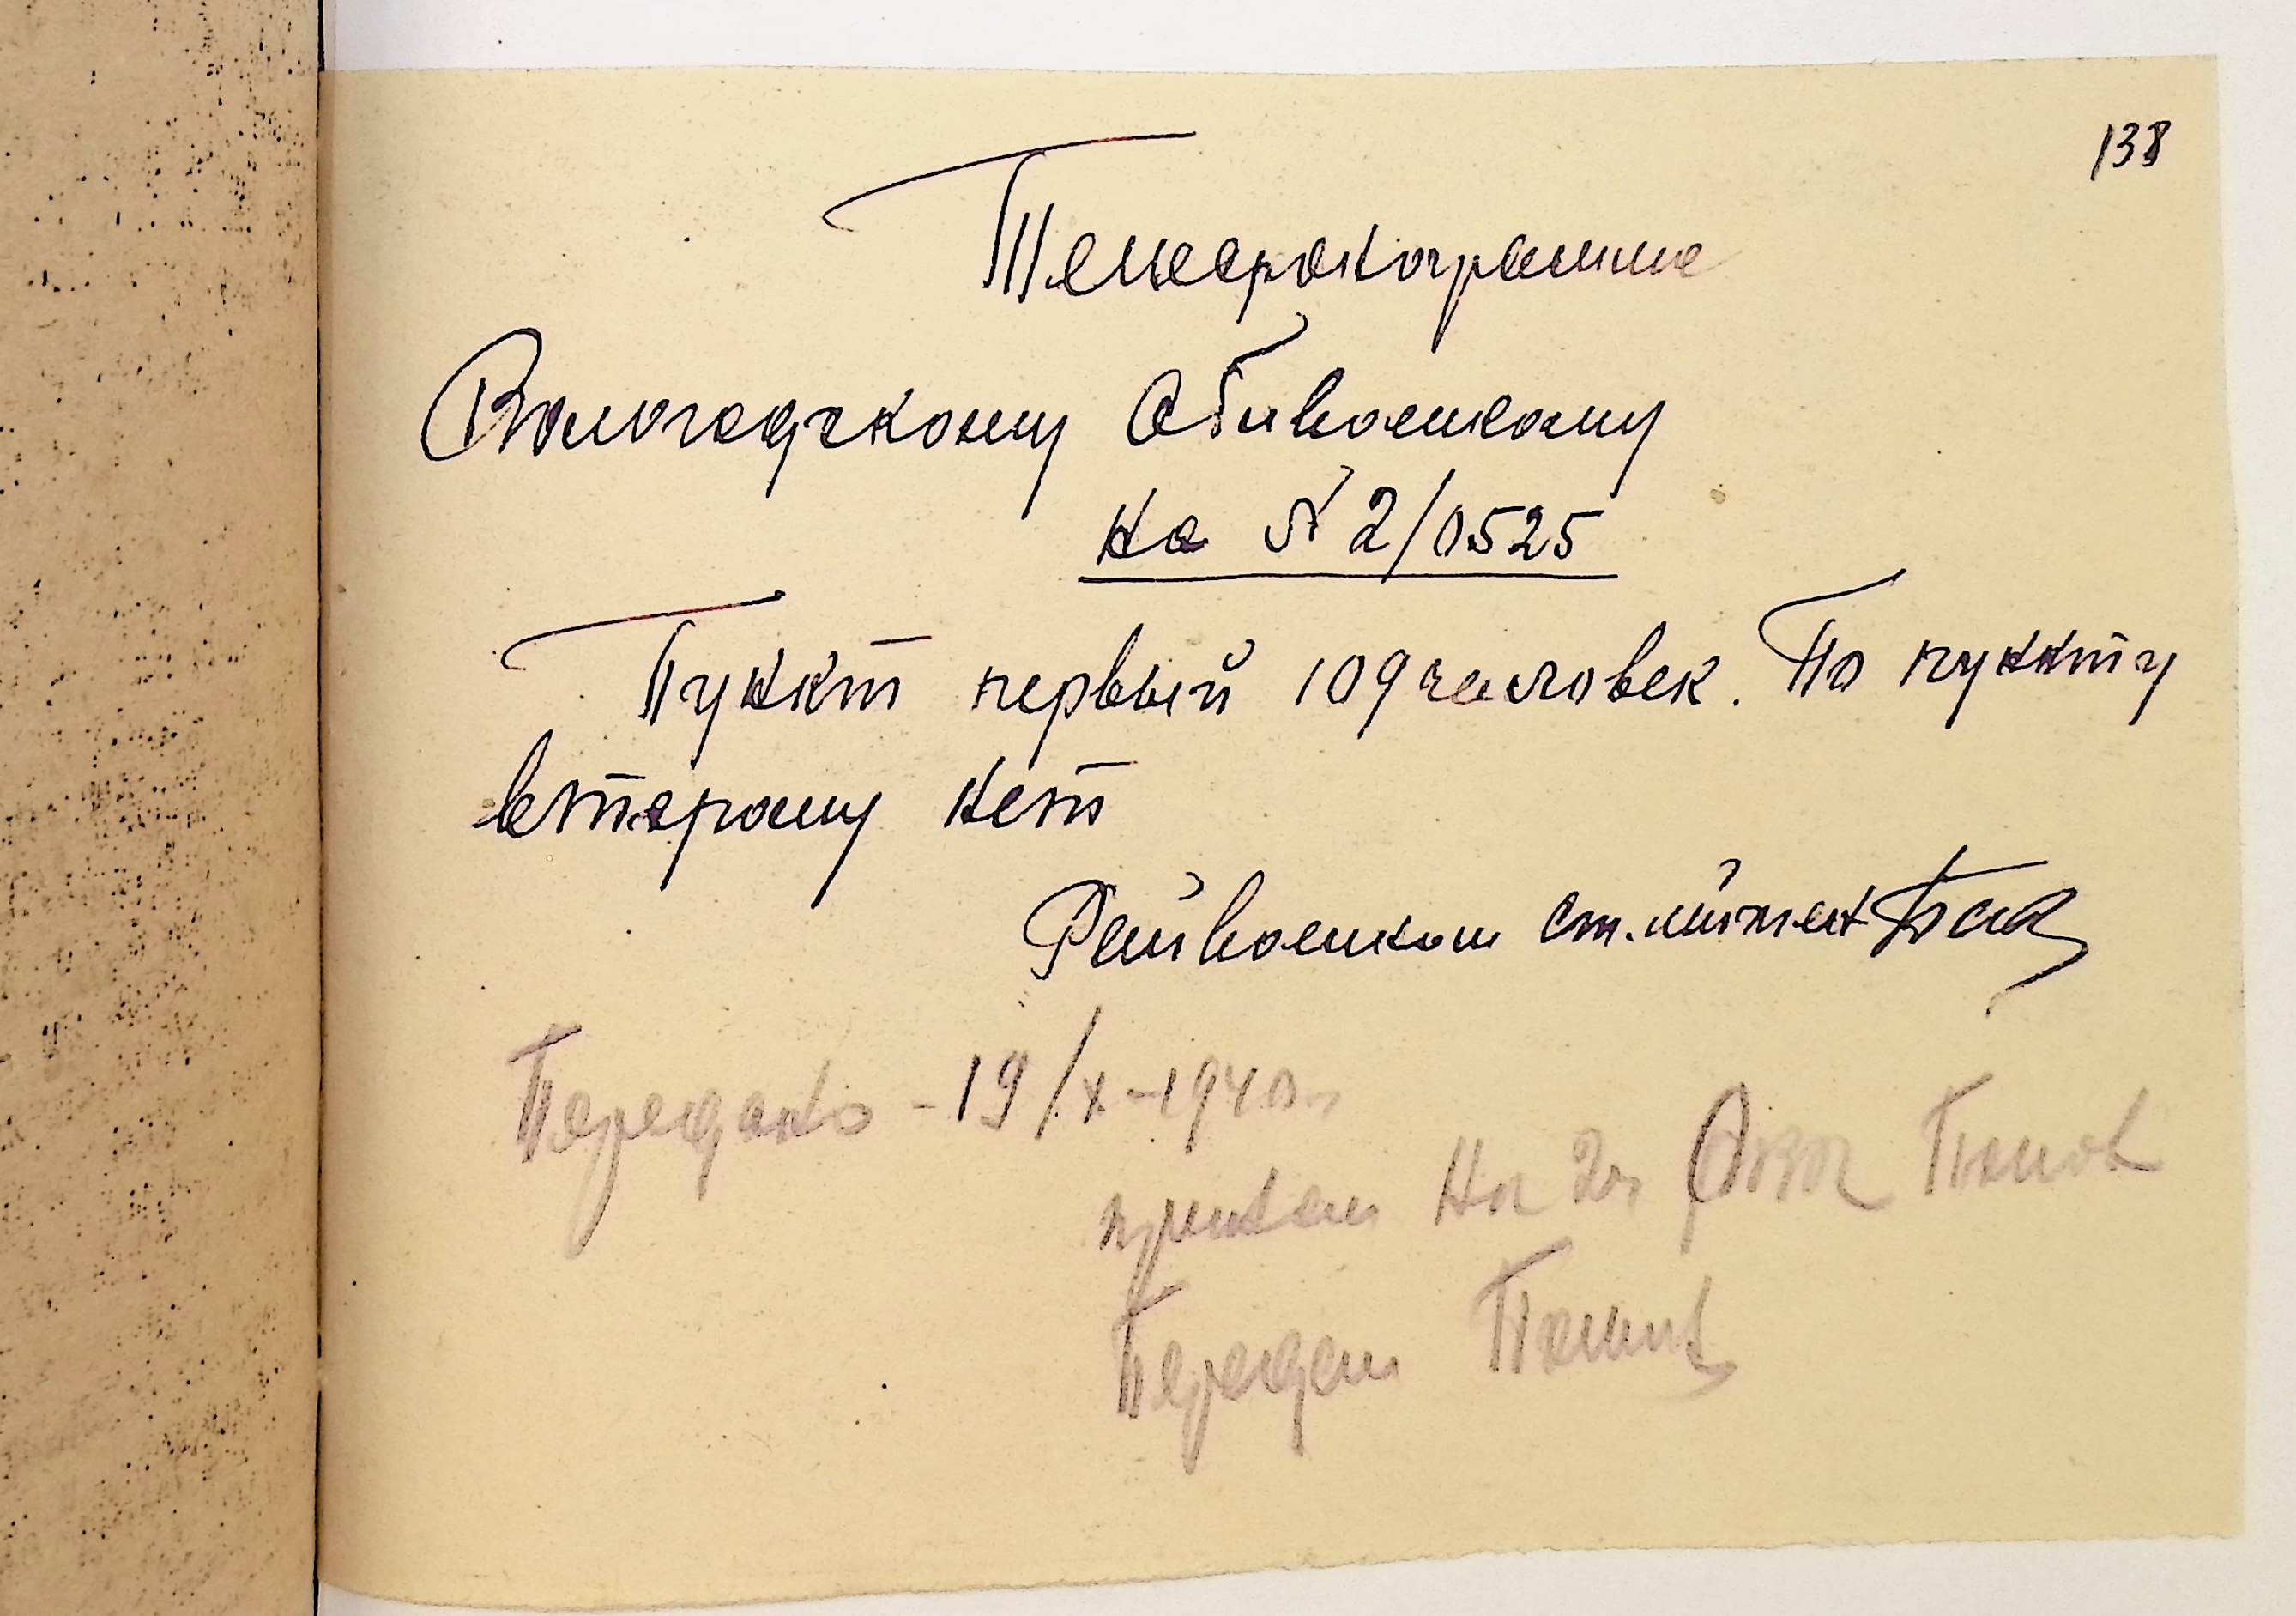 138
Телефонограмма
Вологодскому Облвоенкому
на № 2/0525
Пункт первый 109 человек. По пункту
второму нет
Райвоенком ст. лейтенант
Передано - 19/X - 1940 г.
принял
Передал